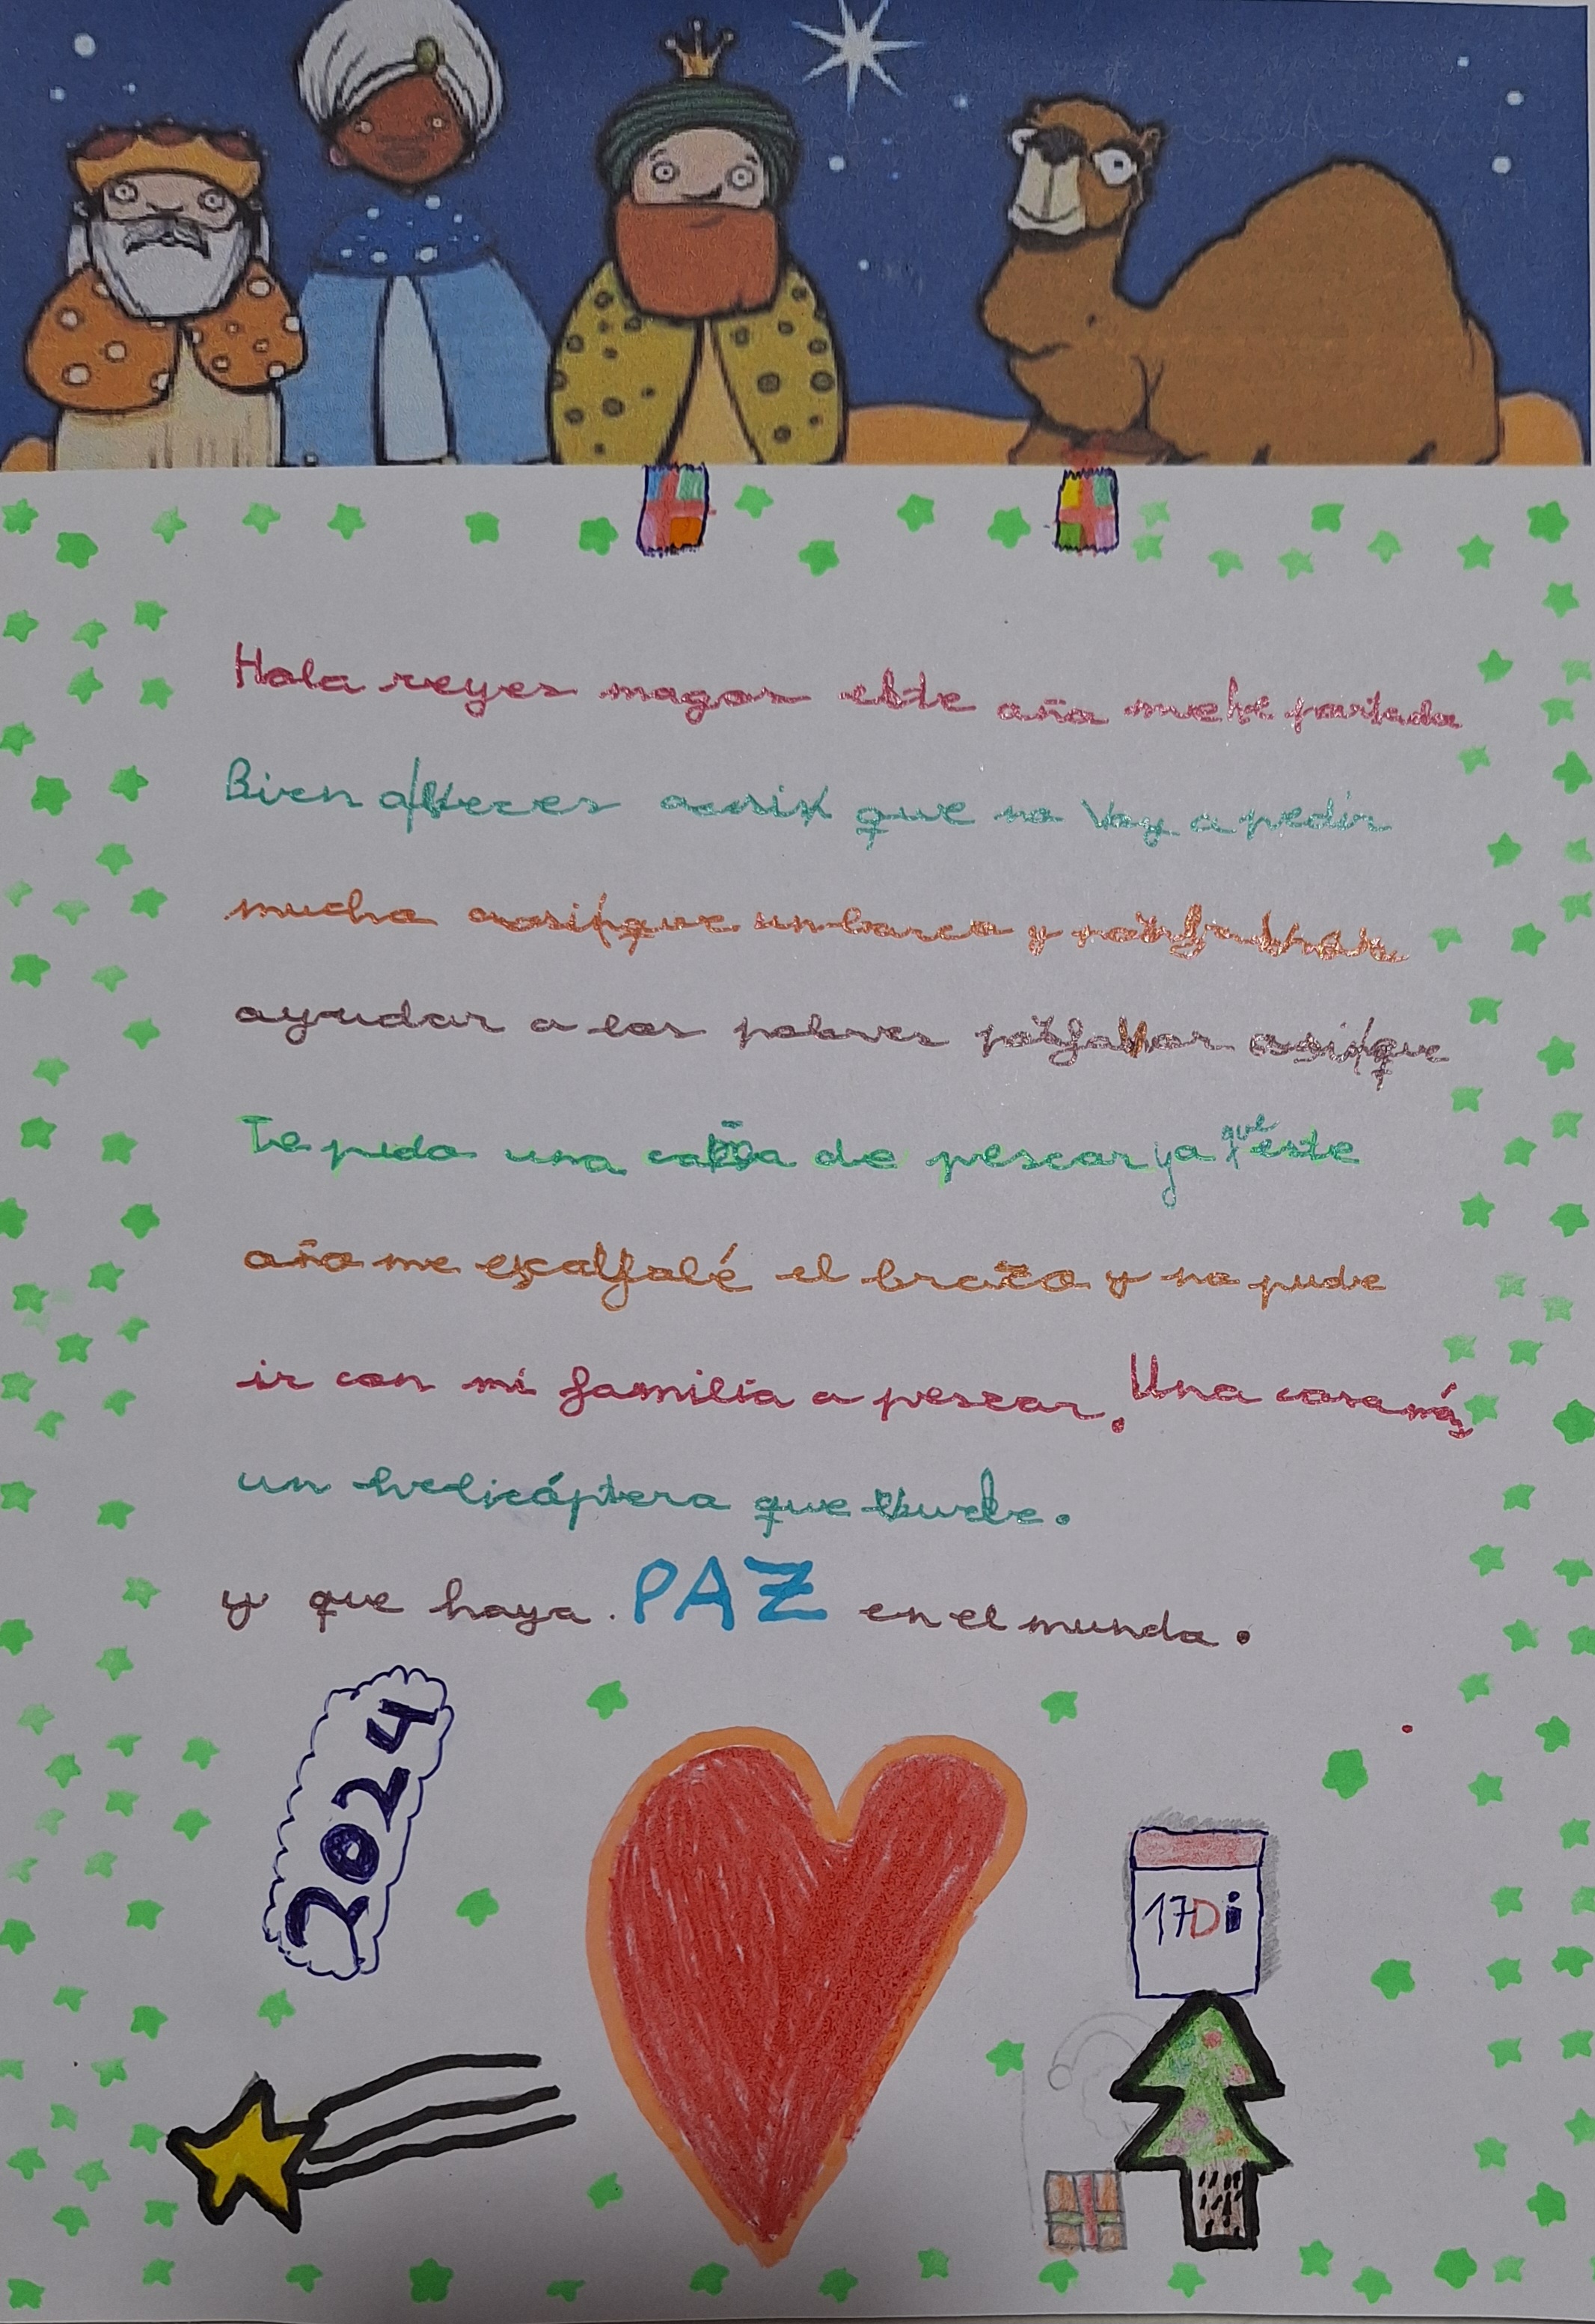 Hola reyes magos este año me he portado
Bien a veces asi que no voy a pedir
mucho asi que un barco y
ayudar a los pobres porfavor asi que
Te pido una caña de pescar ya que este
año me escallolé el brazo y no pude
ir con mi familia a pescar. Una cosa más
un helicóptero que vuele.
y que haya PAZ en el mundo.
2024
17Di